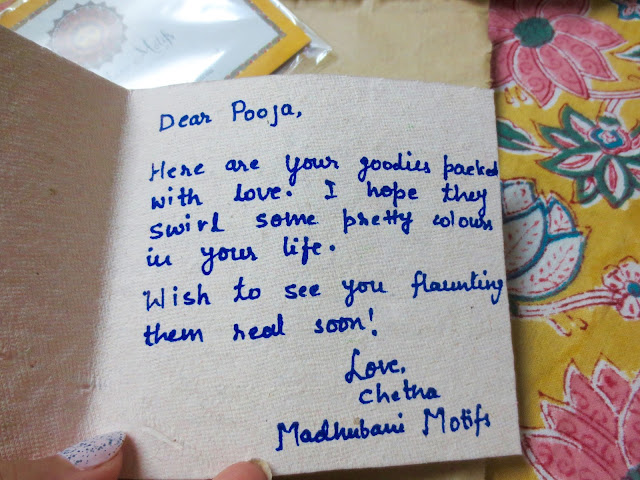 Motifs
Dear Pooja,
Here are your goodies packed
with love. I hope they
swirl some pretty colours
in your life.
Wish to see you flaunting
them real soon!
Love,
Chetna
Madhubani Motifs